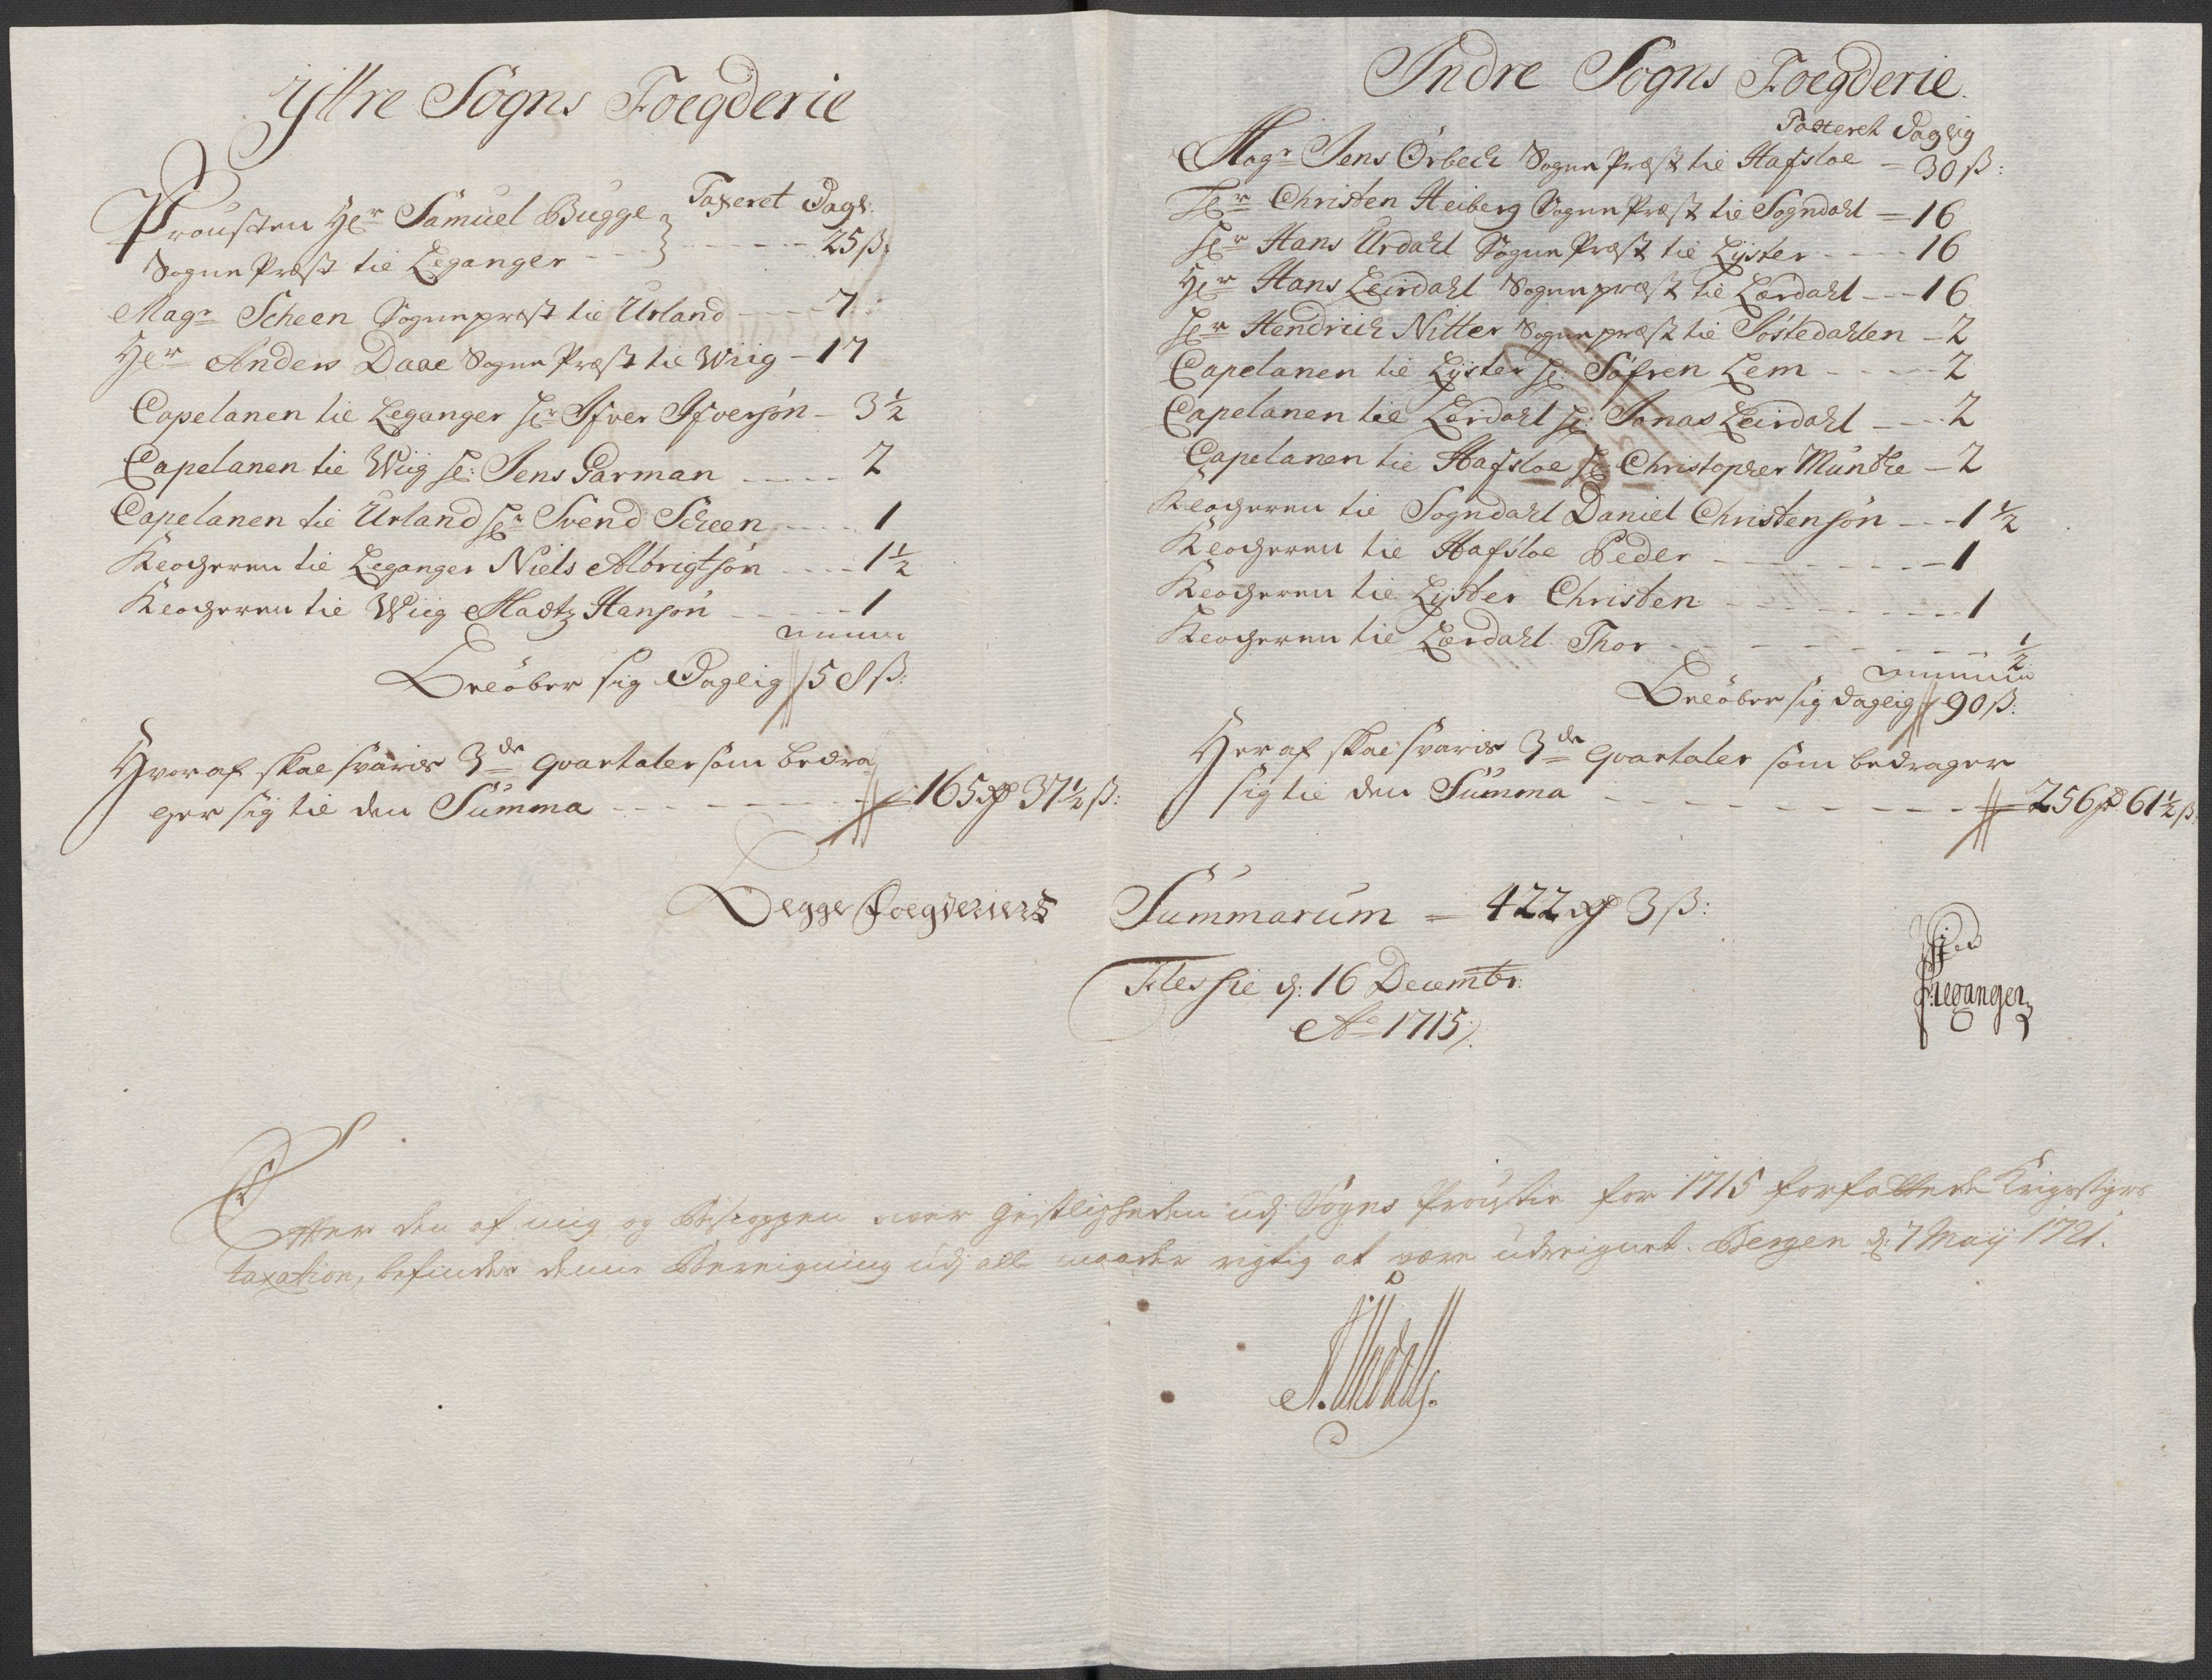 Ÿttre Sogns Foegderie
Taxeret Dagl:
Prousten Hr Samuel Bugge
Sogne Præst til Leganger - - - 25 ß:
Magr Scheen Sognepræst til Urland - - - - 7
Hr Anders Daae Sogne Præst til Wiig - 17
Capelanen til Leganger Hr Ifver Ifversøn - 3 ½
Capelanen til Wiig Hr: Jens Garman - - - - - 2
Capelanen til Urland Hr Svend Scheen - - - - 1
Klocheren til Leganger Niels Albrigtsøn - - - - 1 ½
Klocheren til Wiig Madtz Hansøn - - - - 1
Beløber sig Daglig 58 ß:
Hvoraf skal svaris 3de qvartaler som bedra-
ger sig til den Summa - - - - - - - 165 rdr 37 ½ ß:
Indre Sogns Foegderie
Taxteret Daglig
Magr Jens Ørbech Sogne Præst til Hafsloe = 30 ß:
Hr Christen Heiberg Sogne Præst til Sogndahl = 16
Hr Hans Urdahl Sogne Præst til Lyster - - - - 16
Hr Hans Leirdahl Sognepræst til Lærdahl - - - 16
Hr Hendrich Nitter Sognepræst til Jostedahlen - 2
Capelanen til Lyster Hr: Søfren Lem - - - - - 2
Capelanen til Lærdahl Hr: Jonas Leirdahl - - - 2
Capelanen til Hafsloe Hr: Christopher Munthe - 2
Klocheren til Sogndahl Daniel Christensøn - - - 1 ½
Klocheren til Hafsloe Peder - - - - - - - - 1
Klocheren til Lyster Christen - - - - - - - - 1
Klocheren til Lærdahl Thor - - - - - - - - ½
Beløber sig daglig 90 ß:
Her af skal svaris 3de qvartaler som bedrager
sig til den Summa - - - - - - - - - 256 rd 61 ½ ß
Begge Foegderiers Summarum = 422 rdr 3 ß:
Flesche d: 16 Decembr:
Ao 1715
Leganger
Efter den af mig og Biscoppen over gejstligheden udj Sogns Proustie for 1715 forfattede Krigsstyrs
taxation, befindes denne Bereigning udj alle maader rigtig at være udreignet. Bergen d: 7 Maij 1721.